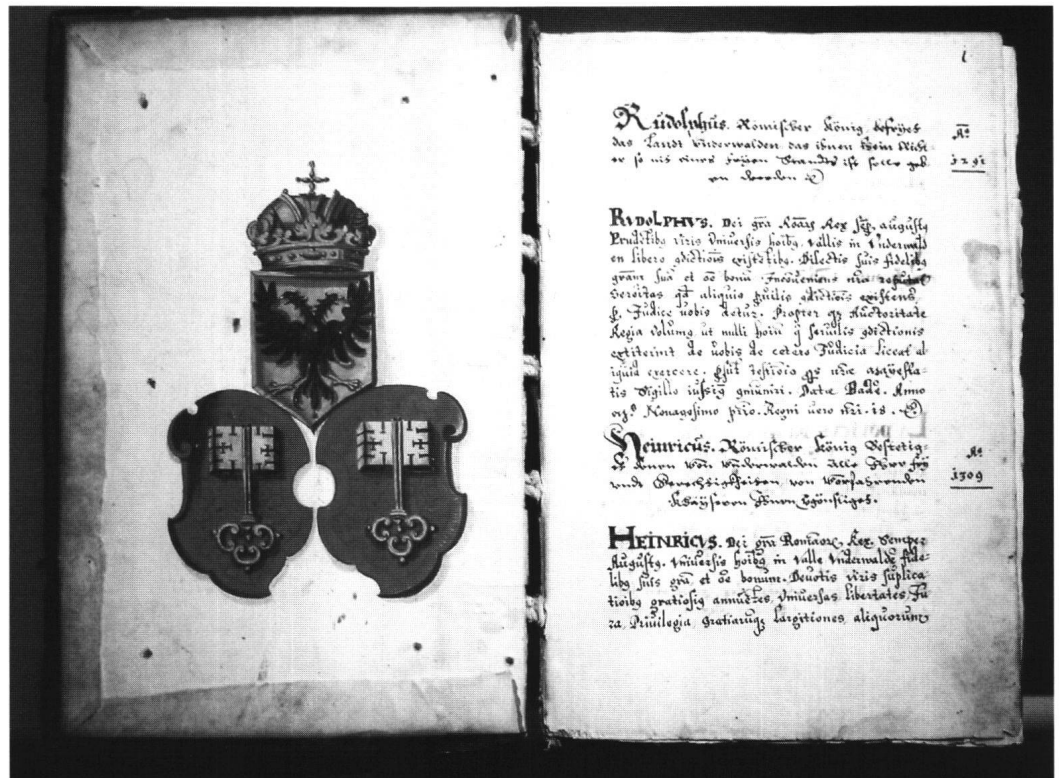 i
Rudolphus. Römischer König, befryes
das Landt Underwalden das ihnen khein Richt-
er so nit eines fryen Standts ist solle geb-
en werden
Aº
1291
RUDOLPHVS. Dei gra̅ Roa̅ɤ Rex sēp. august9
Prude̅tib9 viris Universis hoib9. Vallis in Underwald
en libero 9dictiois existe̅tib9. Dilectis suis fidelib9
gra̅m sua̅ et oē bonu̅. Inconueniens nr̅a reputat
Serᵒitas qd̅ aliquis seruilis 9dictiois existens
p. Judice uobis detur. Propter qᵹ Auctoritate
Regia volum9 ut nulli hoiu̅ q̅ seruilis 9dictionis
extiterint de uobis de cetero Judicia liceat al
iquid exercere. p̅sut̅ testi̅o̅io qᵹ nr̅e maiesta-
tis Sigillo iussi9 9muniri. Datæ Bade. Anno
Nonagesimo pri̅o. Regni uero nr̅i. 18.
Heinricus. Römischer König Bestetig-
et denen von Underwalden Alle Ihre fry
unde Gerechtigkheiten von Vorfahrenden
Khayseren Ihnen Vergönstiget.
Aº
1309
HEINRICVS. Dei gra̅ Romaorɤ. Rex. Semper
August9. Universis hoib9 in Valle Underwalde̅ fide-
lib9 suis gra̅ et oē bonum. Deuotis vr̅is suplica
tioib9 gratiosi9 annue̅tes, Universas libertates, Ju
ra, Priuilegia, gratiarumqᵹ largitiones, aliquorum